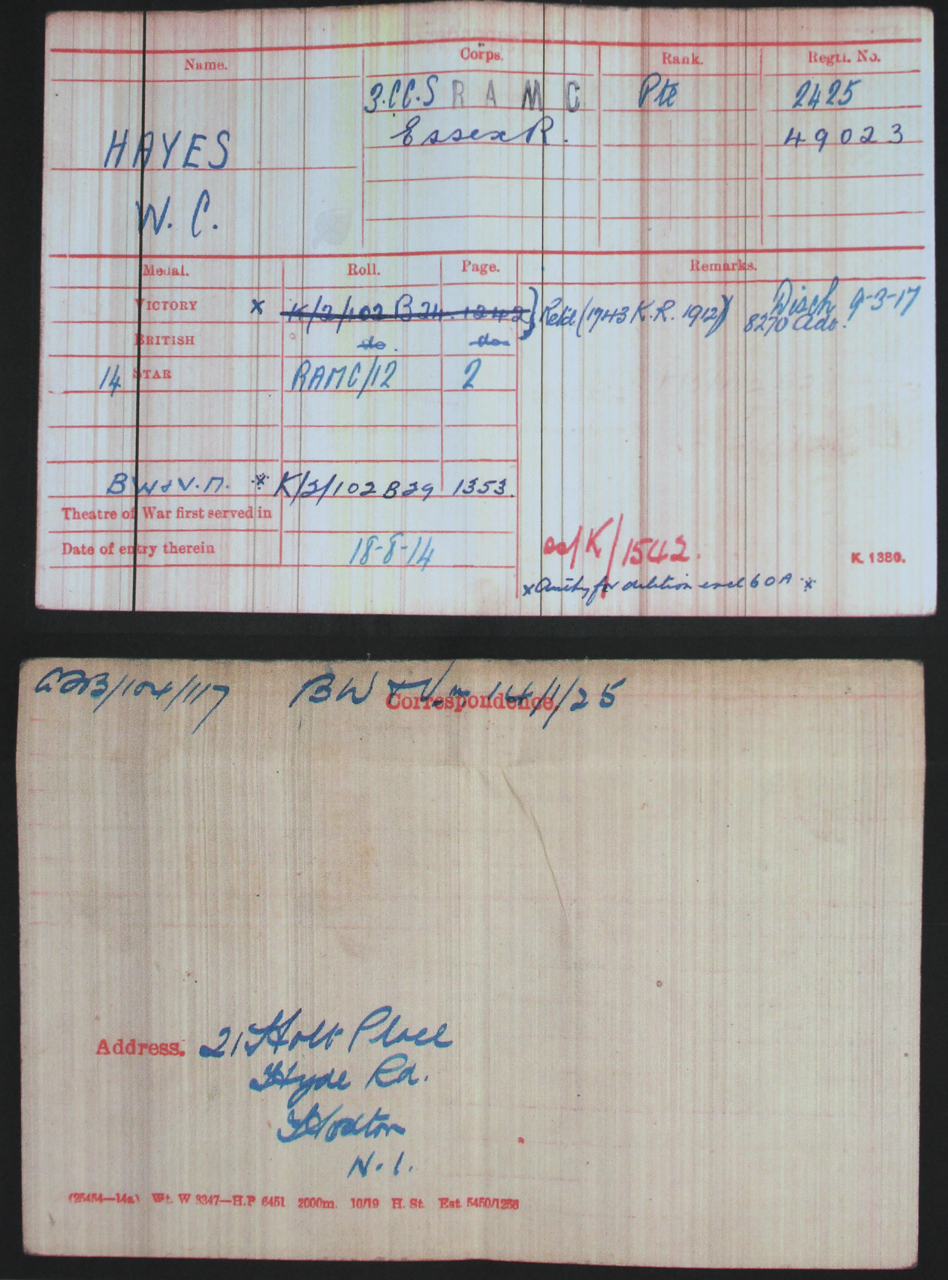 Name. Corps. Rank. Regtl. No.
3.CC.S R A M C Pte 2425
Essex R. 49023
HAYES
W. C.
Medal. Roll. Page. Remarks.
VICTORY x K/2/102 B24. 1242 } Retd (1743 K.R. 1912) Disch 9-3-17
8270 Ado.
BRITISH do. do
14 STAR RAMC/12 2
B W & V. M. * K/2/102 B29 1353.
Theatre of War first served in
Date of entry therein 18-8-14
K/1542.
K. 1380.
x Authy for deletion encl 60A x
/104/117 BW & Vm 14/1/25
Correspondence.
Address. 21 Holt Place
Hyde Rd.
Hoxton
N. 1.
(25454—14a) Wt. W 3347—H.P 6451 2000m. 10/19 H. St. Est. 5450/1256